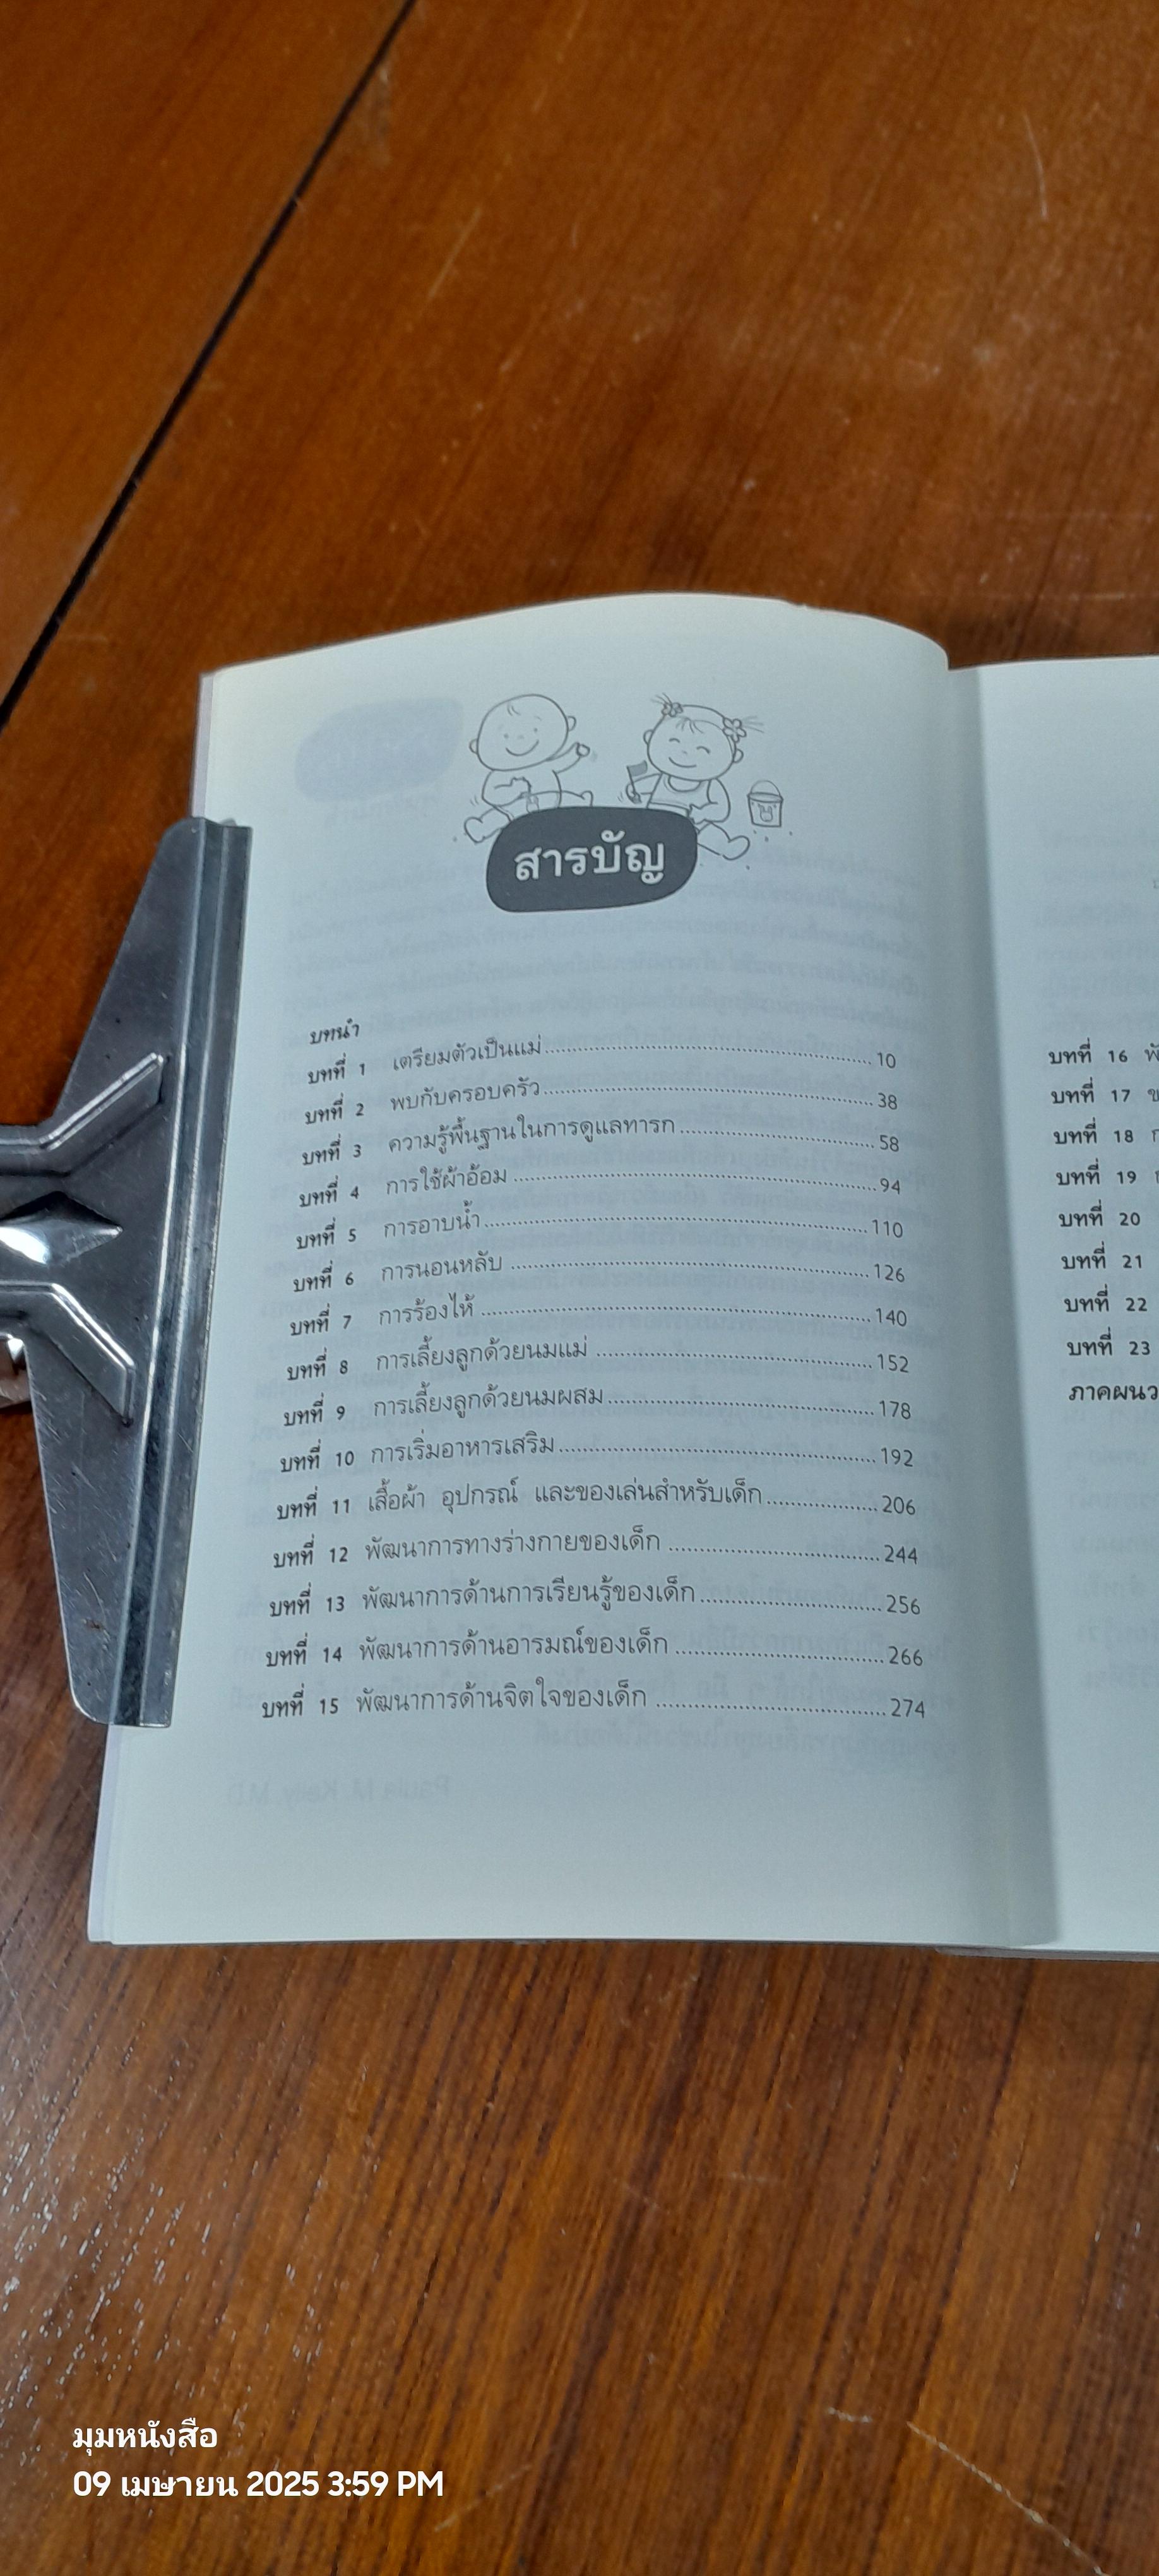 สารบัญ
บทนำ
บทที่ 1 เตรียมตัวเป็นแม่....................10
บทที่ 2 พบกับครอบครัว....................38
บทที่ 3 ความรู้พื้นฐานในการดูแลทารก....................58
บทที่ 4 การใช้ผ้าอ้อม....................94
บทที่ 5 การอาบน้ำ....................110
บทที่ 6 การนอนหลับ....................126
บทที่ 7 การร้องไห้....................140
บทที่ 8 การเลี้ยงลูกด้วยนมแม่....................152
บทที่ 9 การเลี้ยงลูกด้วยนมผสม....................178
บทที่ 10 การเริ่มอาหารเสริม....................192
บทที่ 11 เสื้อผ้า อุปกรณ์ และของเล่นสำหรับเด็ก....................206
บทที่ 12 พัฒนาการทางร่างกายของเด็ก....................244
บทที่ 13 พัฒนาการด้านการเรียนรู้ของเด็ก....................256
บทที่ 14 พัฒนาการด้านอารมณ์ของเด็ก....................266
บทที่ 15 พัฒนาการด้านจิตใจของเด็ก....................274
บทที่ 16
บทที่ 17
บทที่ 18
บทที่ 19
บทที่ 20
บทที่ 21
บทที่ 22
บทที่ 23
ภาคผนว
มุมหนังสือ
09 เมษายน 2025 3:59 PM